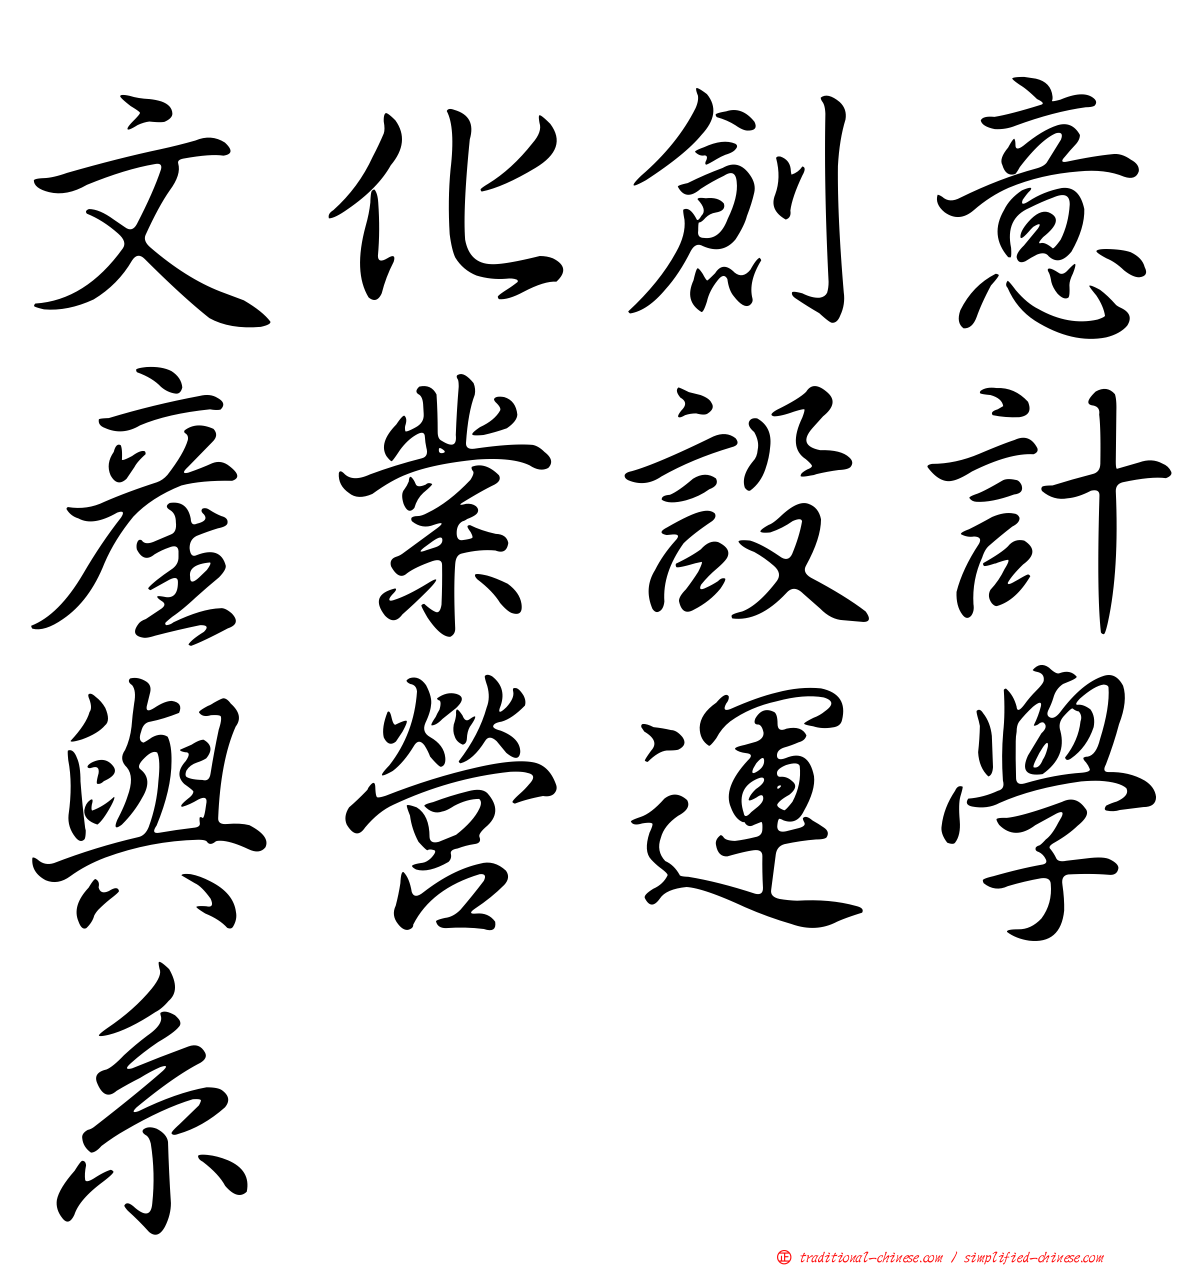 文化創意
產業設計
與營運學
系
正 traditional-chinese.com / simplified-chinese.com